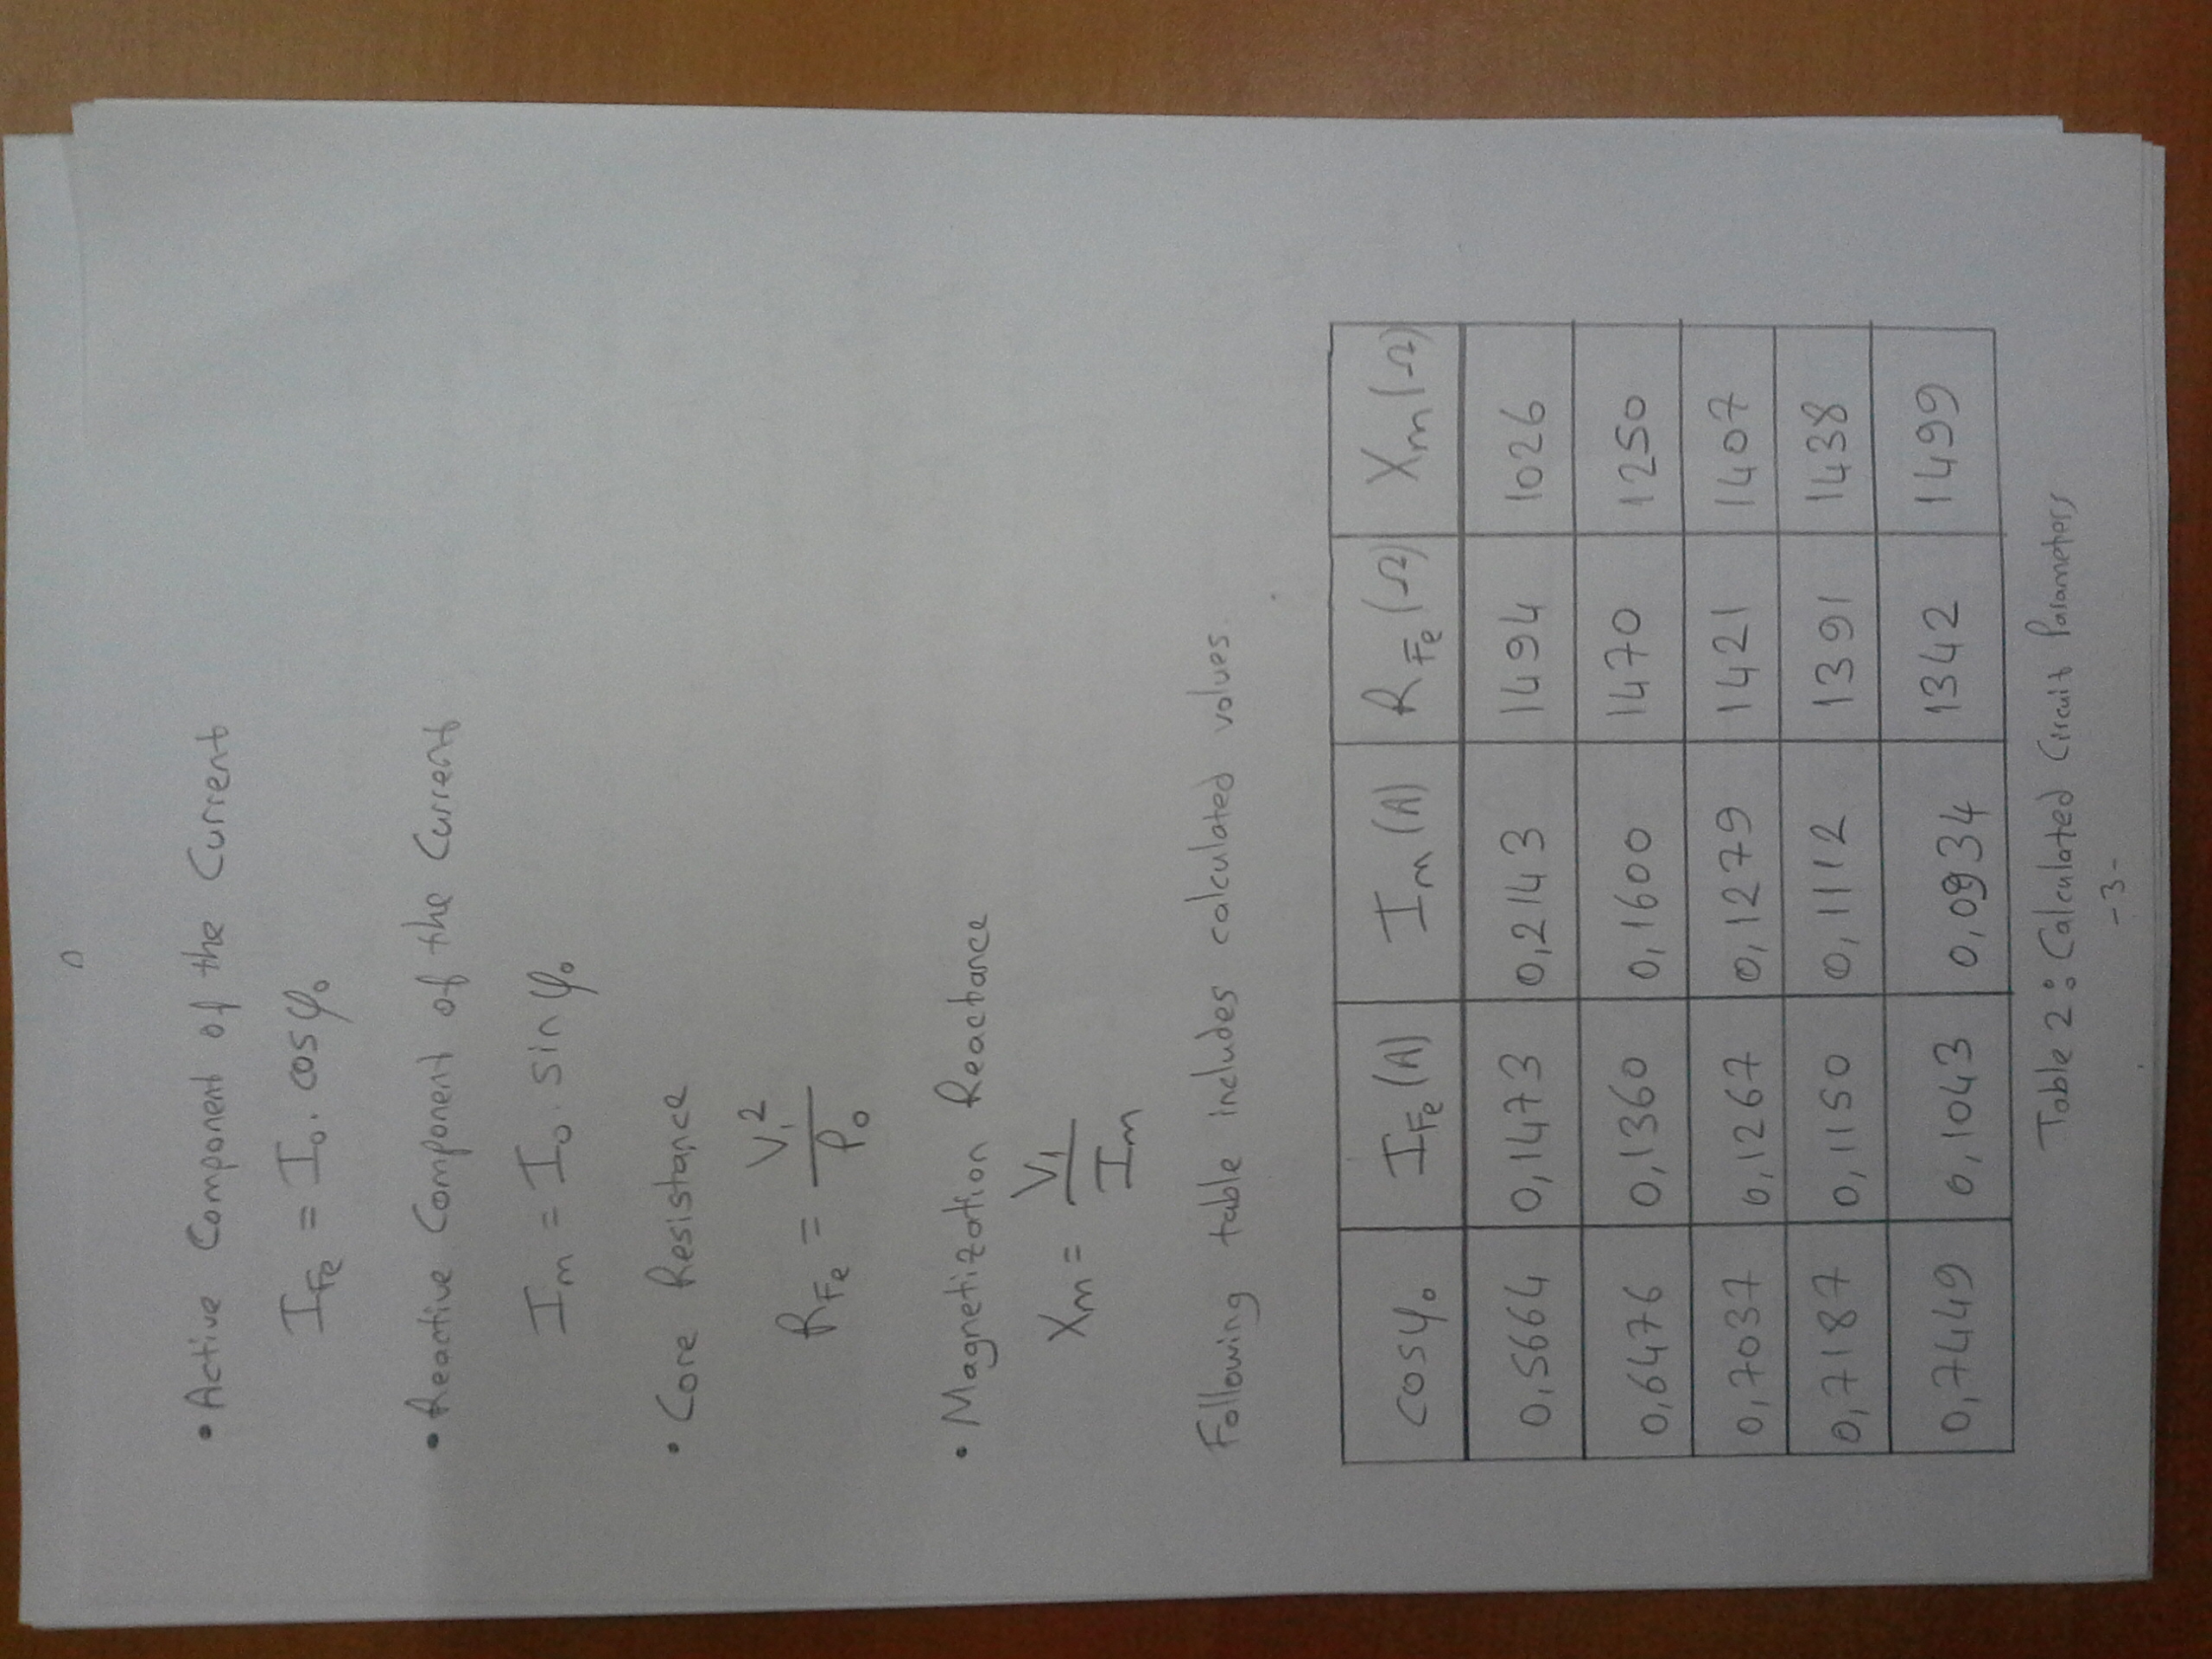 • Active Component of the Current
I_Fe = I_o . cosφ_o
• Reactive Component of the Current
I_m = I_o . sinφ_o
• Core Resistance
R_Fe = V_1^2 / P_o
• Magnetization Reactance
X_m = V_1 / I_m
Following table includes calculated values.
cosφ_o I_Fe (A) I_m (A) R_Fe (Ω) X_m (Ω)
0,5664 0,1473 0,2143 1494 1026
0,6476 0,1360 0,1600 1470 1250
0,7037 0,1267 0,1279 1421 1407
0,7187 0,1150 0,1112 1391 1438
0,7449 0,1043 0,0934 1342 1499
Table 2: Calculated Circuit Parameters
-3-